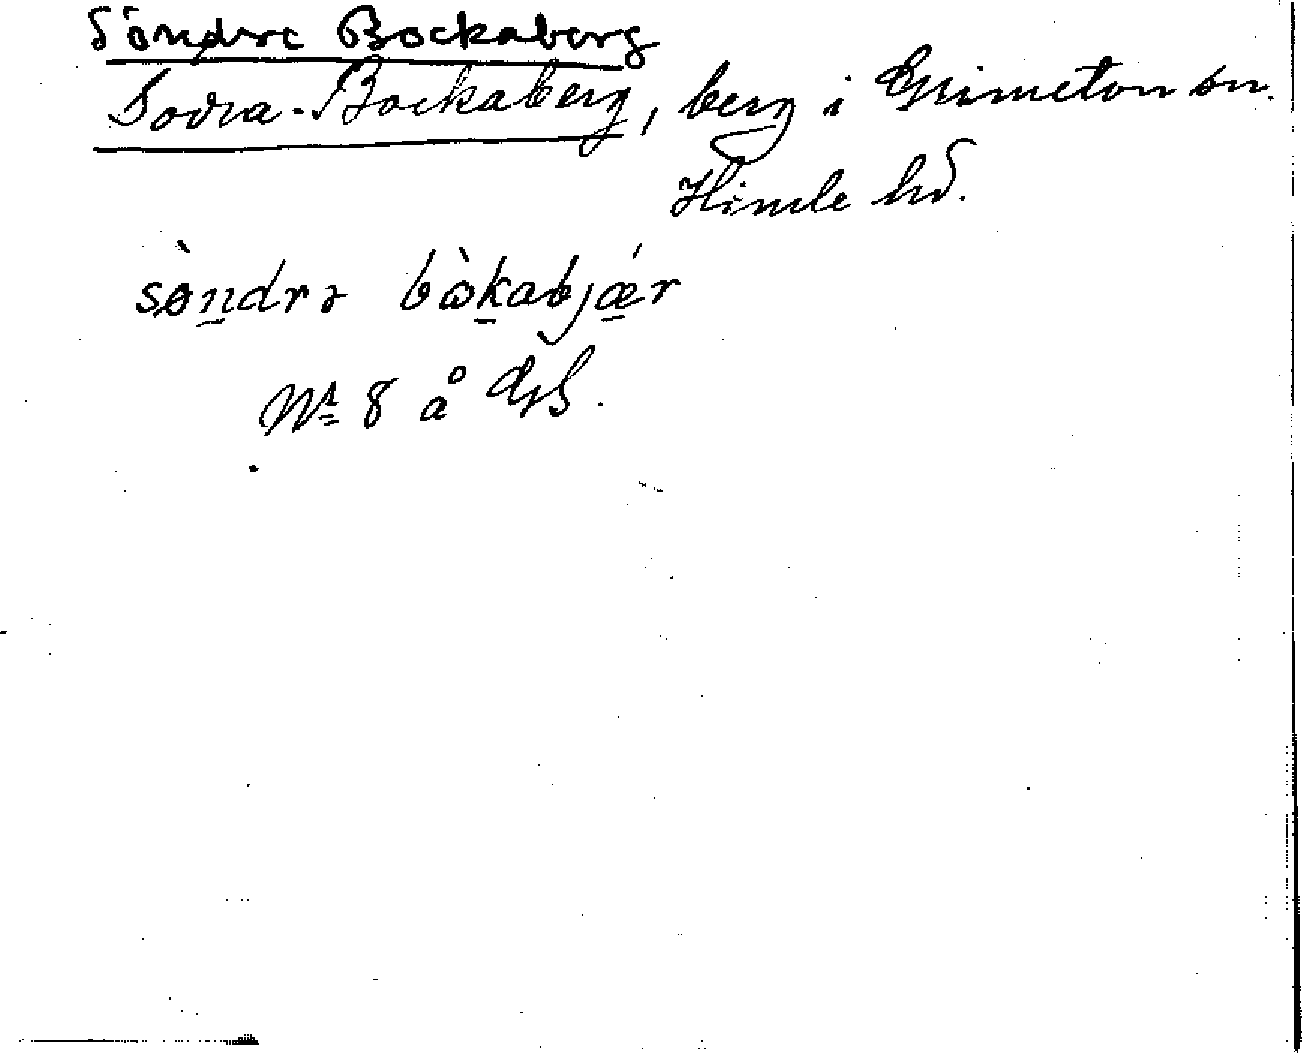 Söndre Bockaberg
Södra-Bockaberg, berg i Grimeton sn.
Himle hd.
sø̀ndrə bὼkabjǽr
Nr 8 å GS.